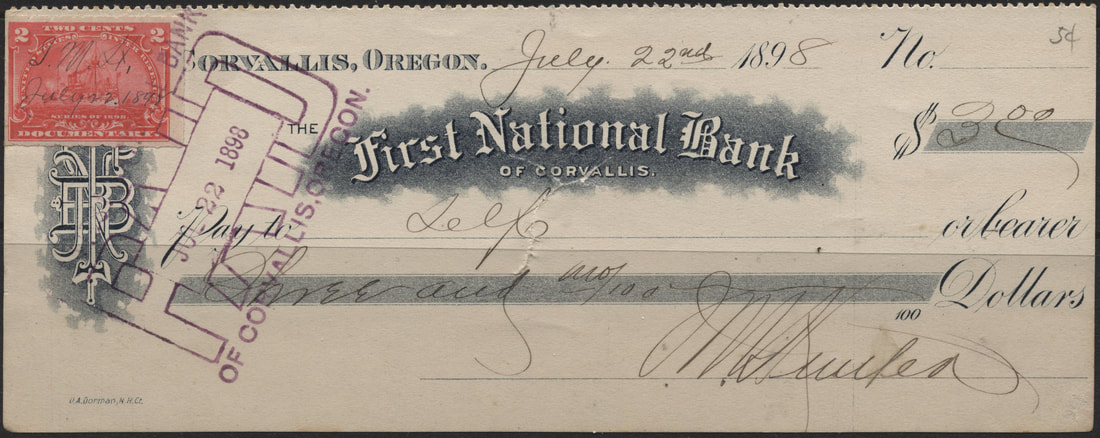 2 TWO CENTS 2
July 22. 1898
SERIES OF 1898
DOCUMENTARY
CORVALLIS, OREGON. July. 22nd 1898 No.
5¢
BANK
PAID
JUL 22 1898
OF CORVALLIS, OREGON.
THE First National Bank
OF CORVALLIS.
$ 3 00
FNB
Pay to Self or bearer
Three and no/100 Dollars
100
V.A. Dorman, N.H. Ct.